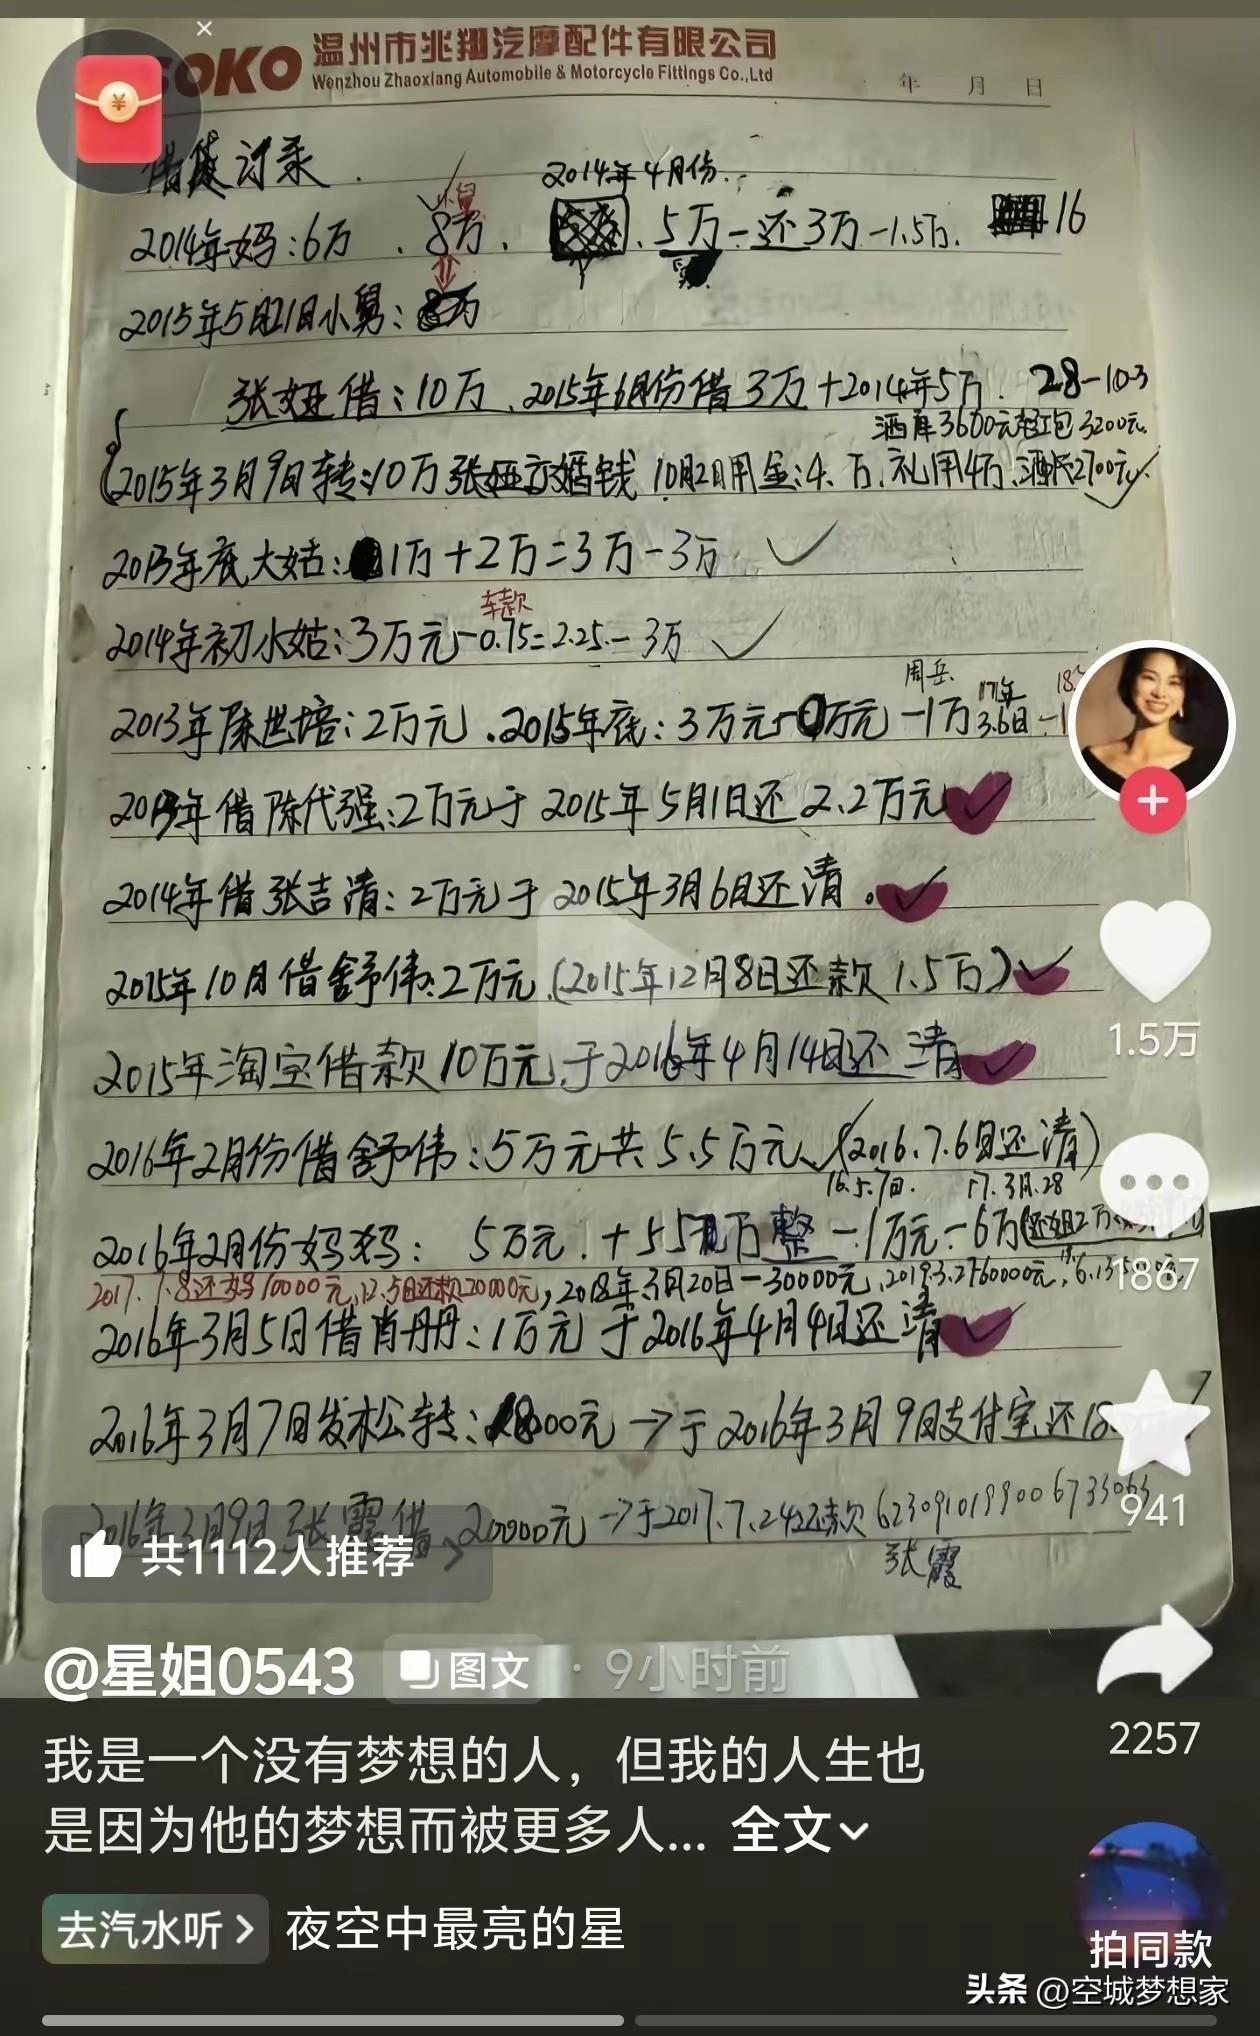 SOKO 温州市兆翔汽摩配件有限公司
Wenzhou Zhaoxiang Automobile & Motorcycle Fittings Co.,Ltd
年 月 日
借贷记录.
2014年4月份.
小舅
2014年妈:6万 . 8万. 5万-还3万-1.5万. 16
2015年5月21日小舅:
张娅借:10万、2015年6月份借3万+2014年5万. 28-10.3
酒席3600元红包3200元
2015年3月9日转:10万张娅 婚钱 10月2日用金:4.万、礼用4万、 2700元
2013年底大姑: 1万+2万=3万-3万
车款
2014年初小姑:3万元-0.75=2.25-3万
周岳. 17年 18.
2013年陈世培:2万元、2015年底:3万元- 万元-1万 3.6日-1
年借陈代强:2万元于2015年5月1日还2.2万元
2014年借张吉清:2万元于2015年3月6日还清.
2015年10月借舒伟:2万元.(2015年12月8日还款1.5万)
2015年淘宝借款10万元于2016年4月14日还清
2016年2月份借舒伟:5万元共5.5万元、(2016.7.6日还清)
16.5.7日. 17.3月.28
2016年2月份妈妈: 5万元.+5.5 万整-1万元-6万(还姐2万
2017.7.8还妈10000元、12.5日还款20000元,2018年3月20日-30000元、2019.3.2 60000元,
2016年3月5日借肖丹丹:1万元于2016年4月4日还清
2016年3月7日发松转: 000元→于2016年3月9日支付宝还18
2016年3月9日张霞借 20000元→于2017.7.24还款
张霞
1.5万
1867
941
2257
共1112人推荐 >
@星姐0543 图文 · 9小时前
我是一个没有梦想的人，但我的人生也
是因为他的梦想而被更多人... 全文
去汽水听 > 夜空中最亮的星
拍同款
头条 @空城梦想家